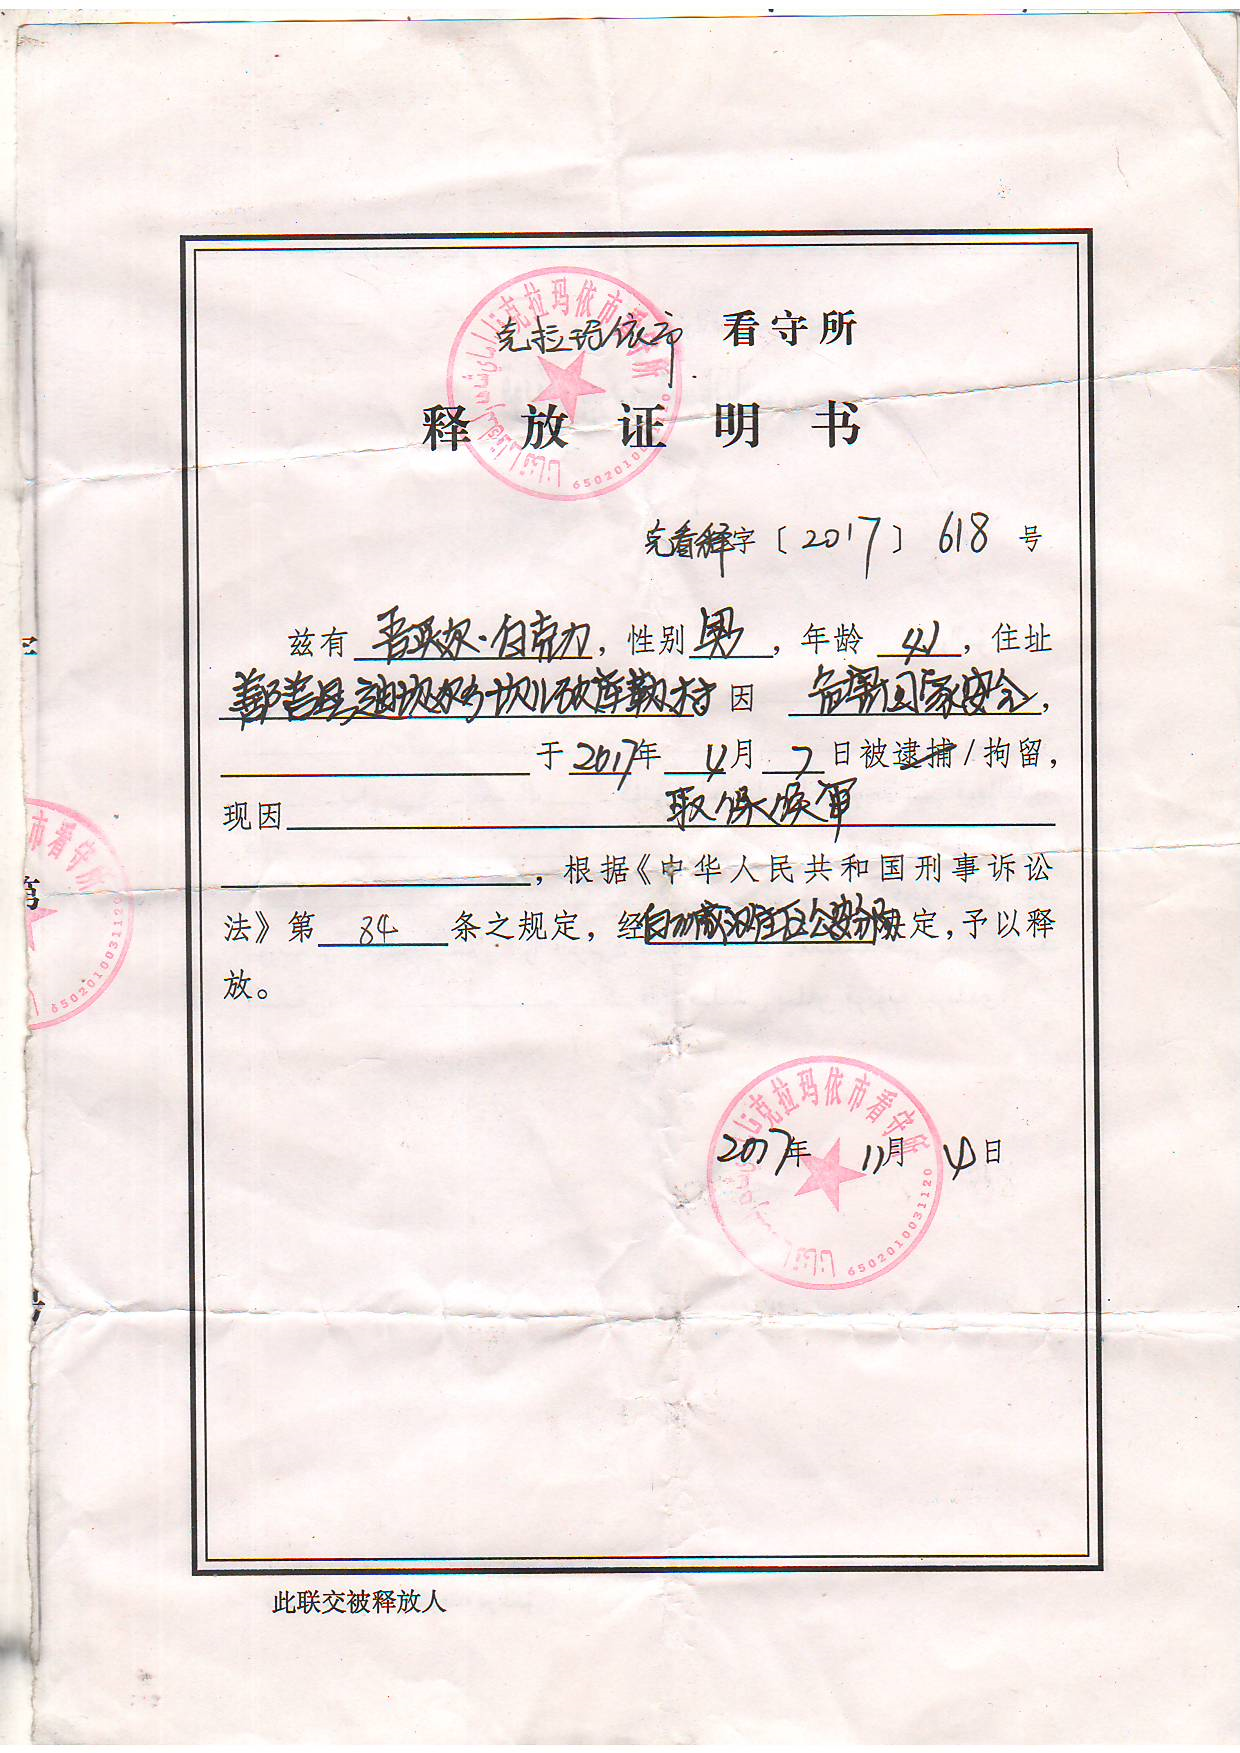 克拉玛依市 看守所
释放证明书
克看释字〔2017〕618号
兹有 吾买尔·白克力,性别 男,年龄 41,住址
鄯善县迪坎乡坎儿 因 危害国家安全,
于2017年4月7日被逮捕/拘留,
现因 取保候审
,根据《中华人民共和国刑事诉讼
法》第 84 条之规定,经 公安分局决定,予以释
放。
2017年11月4日
此联交被释放人
克拉玛依市看守所
6502010031120
克拉玛依市看守所
6502010031120
市看守所
6502010031120
第
号